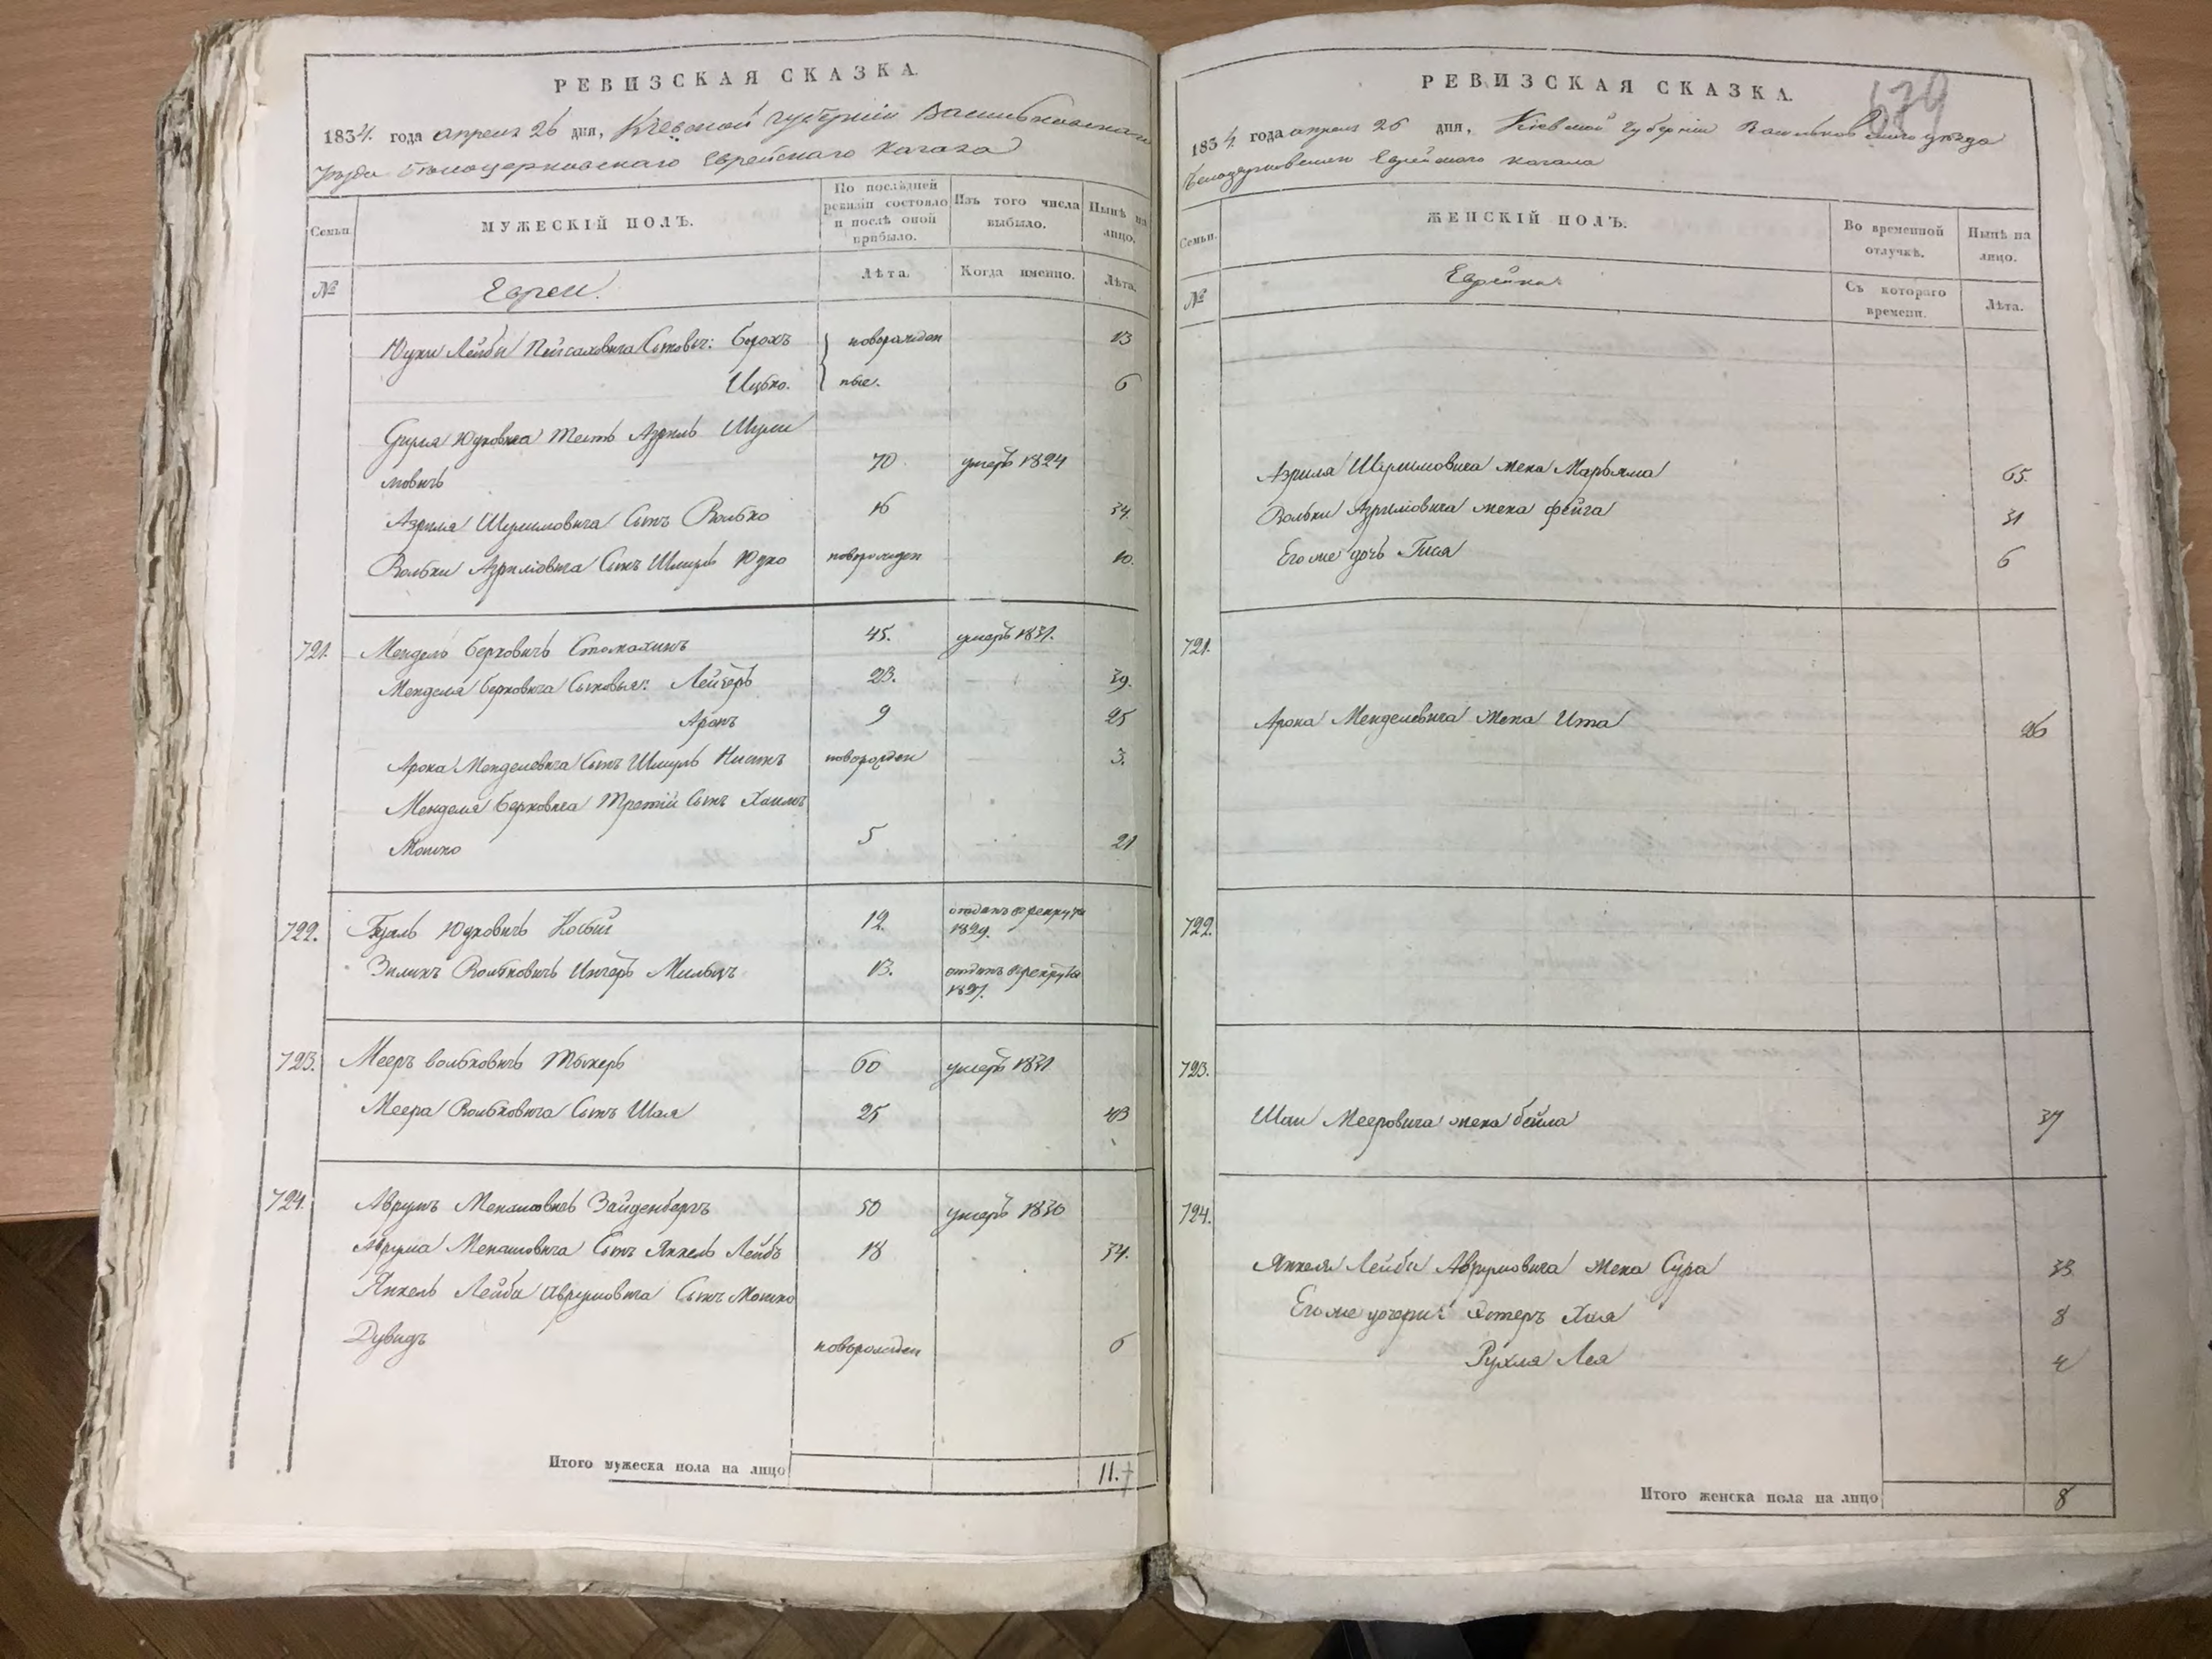 РЕВИЗСКАЯ СКАЗКА.
1834. года апреля 26 дня, Кіевской губерніи Васильковскаго
уѣзда Белоцерковскаго Еврейскаго кагала
Семьи.
МУЖЕСКІЙ ПОЛЪ.
По послѣдней ревизіи состояло и послѣ оной прибыло.
Изъ того числа выбыло.
Нынѣ на лицо.
№
Евреи.
Лѣта.
Когда именно.
Лѣта.
Лейбы Пейсаховича Сыновья: Борохъ новорожден 13
Ицько. ные. 6
Юдковича тесть Азриль Шули
мовичъ 70 умеръ 1824
Азриля Шулимовича Сынъ Волько 16 34.
Вольки Азриліовича Сынъ Шмуль Юдко новорожден 10.
721. Мендель Берковичъ Стомахинъ 45. умеръ 1831.
Менделя Берковича Сыновья: Лейзеръ 23. 39.
Аронъ 9 25
Арона Менделевича Сынъ Шмуль новорожден 3.
Менделя Берковича Третій Сынъ Хаимъ
Мошко 5 21
722. Юдковичъ 12. отданъ в рекруты
1829.
Зеликъ Вольковичъ 13. отданъ в рекруты
723. Мееръ Вольковичъ 60 умеръ 1831
Меера Вольковича Сынъ Шая 25 43
724. Аврумъ Менашовичъ Зайденбергъ 50 умеръ 1830
Аврума Менашовича Сынъ Янкель Лейбъ 18 34.
Янкель Лейбы Аврумовича Сынъ Мошко
Дувидъ новорожден 6
Итого мужеска пола на лицо 11.
РЕВИЗСКАЯ СКАЗКА.
679
1834 года апреля 26 дня, Кіевской губерніи Васильковскаго уѣзда
Белоцерковскаго Еврейскаго кагала
Семьи.
ЖЕНСКІЙ ПОЛЪ.
Во временной отлучкѣ.
Нынѣ на лицо.
№
Еврейки.
Съ котораго времени.
Лѣта.
Азриля Шулимовича жена Марьяма 65.
Вольки Азриліовича жена Фейга 31
Его же дочь Гися 6
721.
Арона Менделевича жена Ита 26
722.
723.
Шаи Мееровича жена Бейла 37
724.
Янкеля Лейбы Аврумовича жена Сура 33
Его же дочери: Эстеръ Хая 8
Рухля Лея 4
Итого женска пола на лицо 8